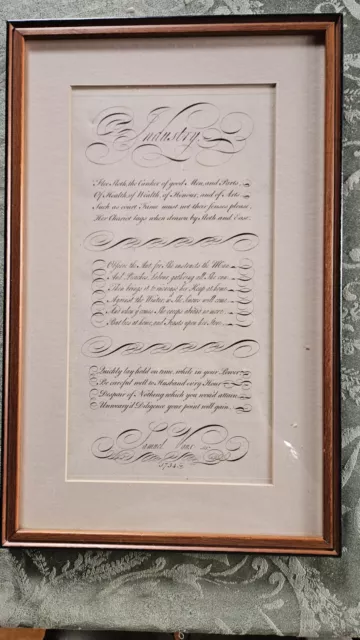 Industry
Flee Sloth, the Canker of good Men, and Parts,
Of Health, of Wealth, of Honour, and of Arts.
Such as court Fame must not their senses please,
Her Chariot lags when drawn by Sloth and Ease.
Observe the Ant, for She instructs the Man,
And Preaches Labour, gathering all She can.
Then brings it to increase her Heap at home,
Against the Winter, She knows will come.
And when it comes She creeps abroad no more,
But lies at home, and Feasts upon her Store.
Quickly lay hold on time, while in your Power
Be careful well to Husband every Hour
Despair of Nothing which you would attain
Unweary'd Diligence your point will gain.
Samuel Vaux
1734